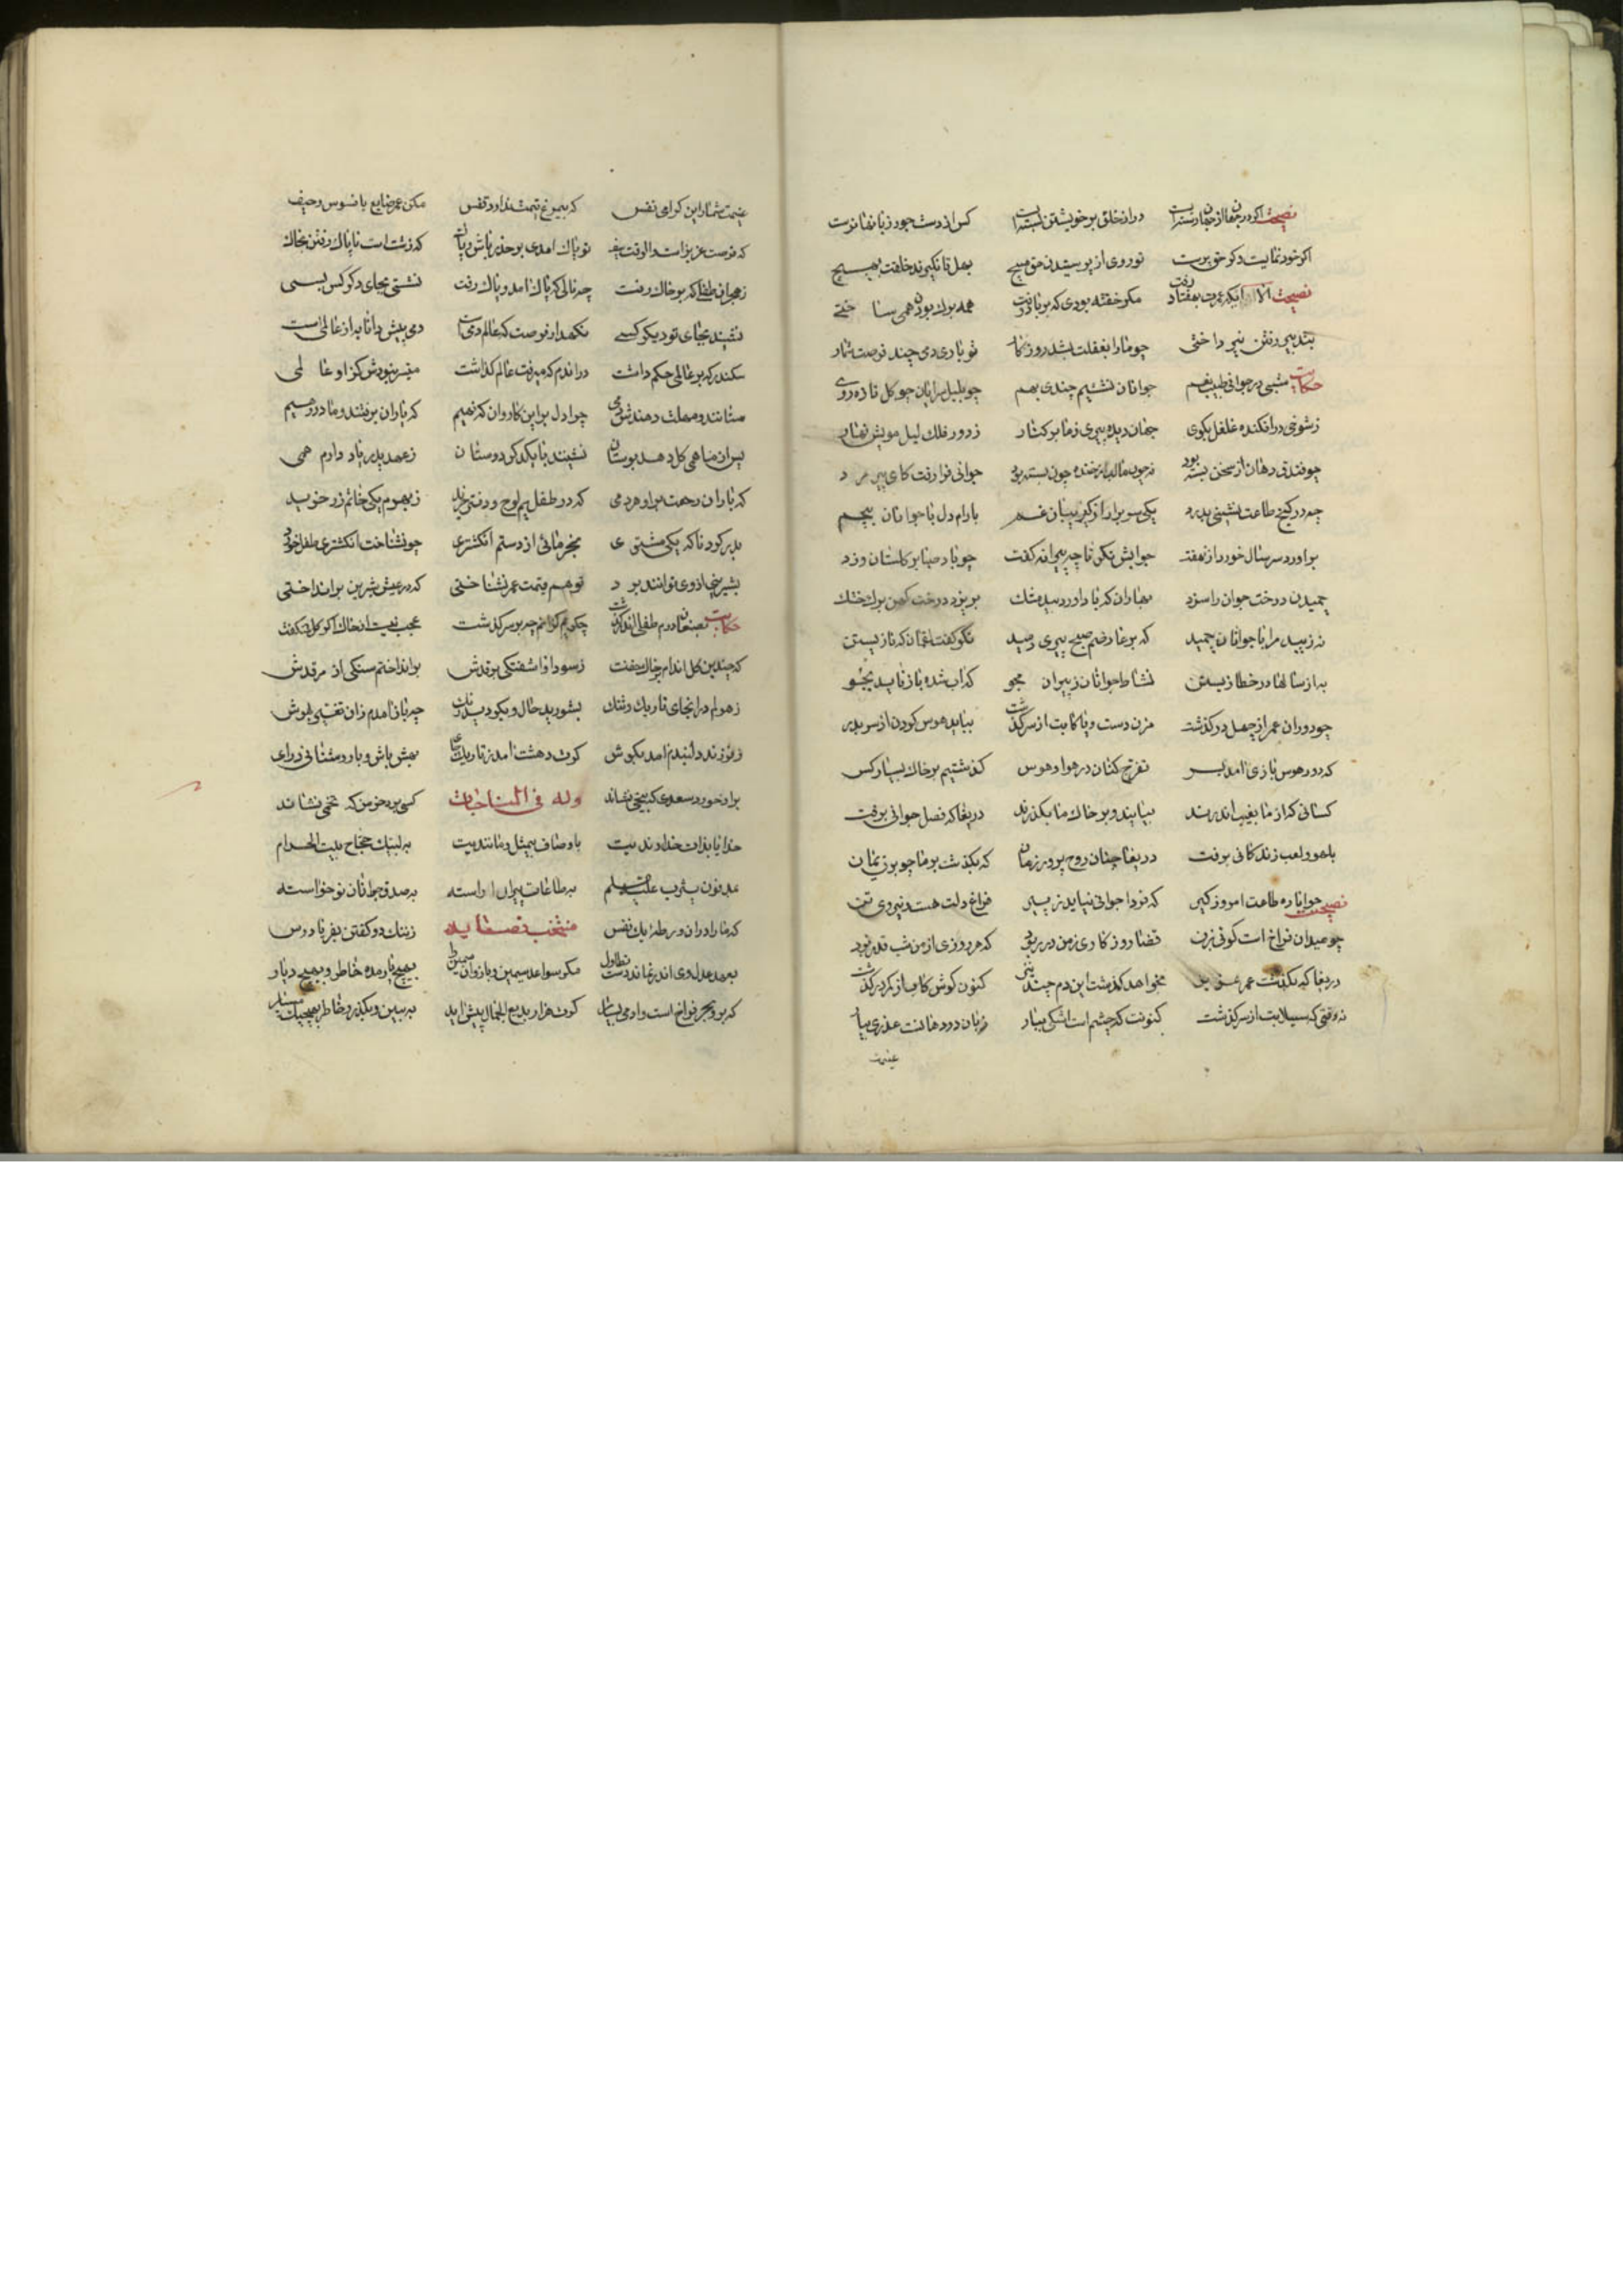 نصیحت اگر در جهان از جهان رسته ایست در از خلق بر خویشتن بسته ایست کس از دست جور زبانها نرست
اگر خود نمایست و گر حق پرست تو روی از پرستیدن حق مپیچ بهل تا نگیرند خلقت بهیچ
نصیحت الا ایکه عمرت بهفتاد رفت مگر خفته بودی که بر باد رفت همه برك بودن همی ساختی
بتدبیر رفتن نپرداختی چو ما را بغفلت بشد روزگار تو باری دمی چند فرصت شمار
حکایت شبی در جوانی و طیب نعم جوانان نشستیم چندی بهم چو بلبل سرایان چو کل تازه روی
ز شوخی در افکنده غلغل بکوی جهان دیده پیری ز ما بر کنار ز دور فلك لیل مویش نهار
چو فندق دهان از سخن بسته بود نه چون ما لب از خنده چون پسته بود جوانی فرا رفت کای پیر مرد
چه در کنج طاعت نشینی بدرد یکی سر برار از کریبان غم بارام دل با جوانان بچم
براورد سر سال خورد از نهفت جوابش نکر تا چه پیرانه کفت چو باد صبا بر کلستان وزد
چمیدن درخت جوان را سزد بهاران که باد اورد بید مشك بریزد درخت کهن برك خشك
نه زیبد مرا با جوانان چمید که بر عارضم صبح پیری دمید نکو کفت لقمان که نازیستن
به از سالها در خطا زیستن نشاط جوانان ز پیران مجو که اب شده باز ناید بجو
چو دوران عمر از چهل در گذشت مزن دست و پا کابت از سر گذشت بباید هوس کردن از سر بدر
که دور هوس بازی امد بسر تفرج کنان در هوا و هوس گذشتیم بر خاك بسیار کس
کسانی که از ما بغیب اندرند بیایند و بر خاك ما بگذرند دریغا که فصل جوانی برفت
بلهو و لعب زندکانی برفت دریغا چنان روح پرور زمان که بگذشت بر ما چو برق یمان
نصیحت جوانا ره طاعت امروز کیر که فردا جوانی نیاید ز پیر فراغ دلت هست و نیروی تن
چو میدان فراخ است کوئی بزن قضا روزکاری ز من در ربود که هر روزی از من شب قدر بود
دریغا که بگذشت عمر عزیز بخواهد گذشت این دم چند نیز کنون کوش کاب از کمر در گذشت
نه وقتی که سیلابت از سر گذشت کنونت که چشم است اشکی ببار زبان در دهانت عذری بیار
غنیمت
غنیمت شمار این کرامی نفس که بی مرغ قیمت ندارد قفس مکن عمر ضایع بافسوس و حیف
که فرصت عزیز است والوقت سیف تو پاك امدی بر حذر باش و پاك که زشت است ناپاك رفتن بخاك
ز هجران طفلی که بر خاك رفت چه نالی که پاك امد و پاك رفت نشستی بجای دکر کس بسی
نشیند بجای تو دیکر کسی نگهدار فرصت که عالم دمی است دمی پیش دانا به از عالمی است
سکندر که بر عالمی حکم داشت در اندم که میرفت عالم گذاشت میسر نبودش کز او عالمی
ستانند و مهلت دهندش دمی چرا دل بر این کاروان که نهیم که یاران برفتند و ما در رهیم
پس از ما همی کل دهد بوستان نشینند با یکدکر دوستان ز عهد پدر یاد دارم همی
که باران رحمت بر او هر دمی که در طفلیم لوح و دفتر خرید ز بهرم یکی خاتم زر خرید
بدر کرد ناکه یکی مشتری بخرمائی از دستم انگشتری چو نشناخت انگشتری طفل خرد
بشیرینی از وی توانند برد تو هم قیمت عمر نشناختی که در عیش شیرین بر انداختی
حکایت بصنعا درم طفلی اندر گذشت چکویم کزانم چه بر سر گذشت عجب نیست از خاك اکر کل شکفت
که چندین کل اندام در خاك خفت ز سودا و اشفتکی بر قدش بر انداختم سنکی از مرقدش
ز هولم در انجای تاریك و تنك بشورید حال و بکردید رنك چو باز امدم زان تغیر بهوش
ز فرزند دلبندم امد بکوش کرت وحشت امد ز تاریك جا بهش باش و با روشنائی درای
بر او خورد سعدی که بیخی نشاند وله فی المناجات کسی برد خرمن که تخمی نشاند
خدایا بذات خداوندیت باوصاف بیمثل و مانندیت به لبیك حجاج بیت الحرام
بمدفون یثرب علیه السلم بطاعات پیران اراسته بصدق جوانان نو خواسته
که ما را در ان ورطه یك نفس منتخب قصاید ز ننك دو کفتن بفریاد رس
بهیچ یار مده خاطر و بهیچ دیار
که بر و بحر فراخ است و ادمی بسیار کرت هزار بدیع الجمال پیش اید ببین و بگذر و خاطر بهیچیك مسپار